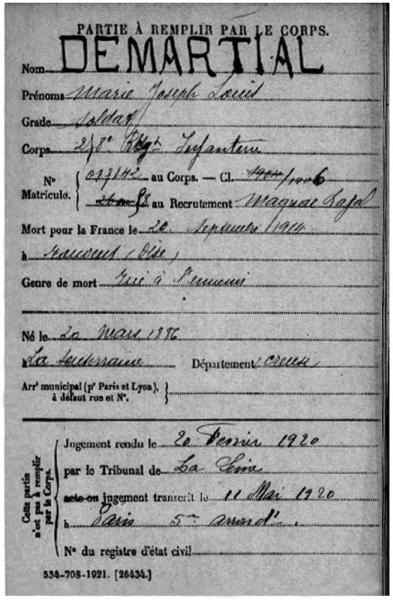 PARTIE À REMPLIR PAR LE CORPS.
Nom DEMARTIAL
Prénoms Marie Joseph Louis
Grade Soldat
Corps 278e Rgt Infanterie
N° Matricule. { 017642 au Corps. — Cl. 1906
au Recrutement Magnac Laval
Mort pour la France le 20 Septembre 1914
à (Oise)
Genre de mort Tué à l'ennemi
Né le 20 Mars 1886
à La Souterraine Département Creuse
Arrt municipal (pr Paris et Lyon), à défaut rue et N°.
Cette partie n'est pas à remplir par le Corps.
Jugement rendu le 20 Février 1920
par le Tribunal de La Seine
acte ou jugement transcrit le 11 Mai 1920
à Paris 5me arrondt.
N° du registre d'état civil
534-708-1921. [26434.]